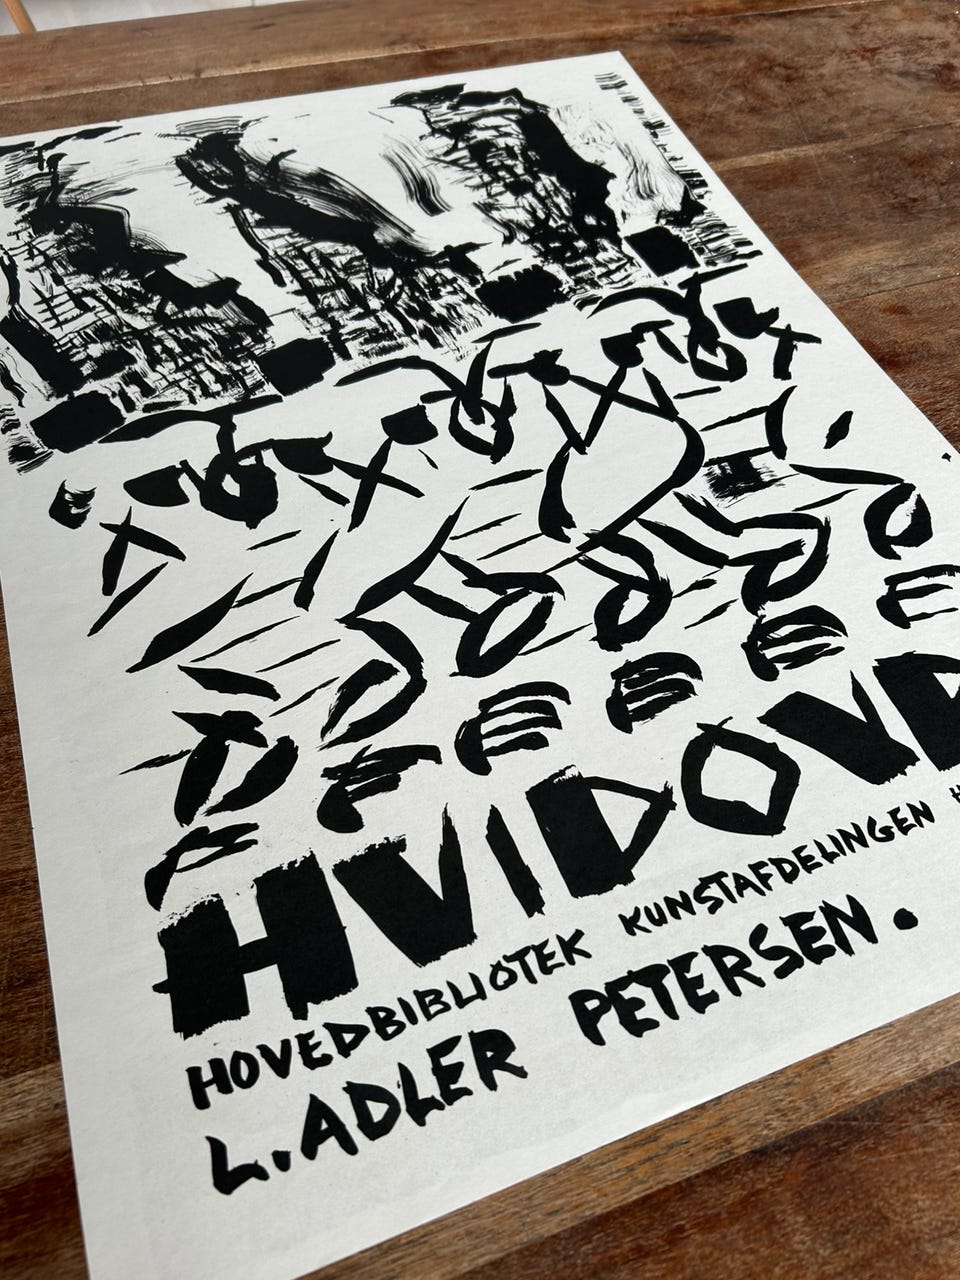 HVIDOVR
HOVEDBIBLIOTEK KUNSTAFDELINGEN H
L. ADLER PETERSEN.